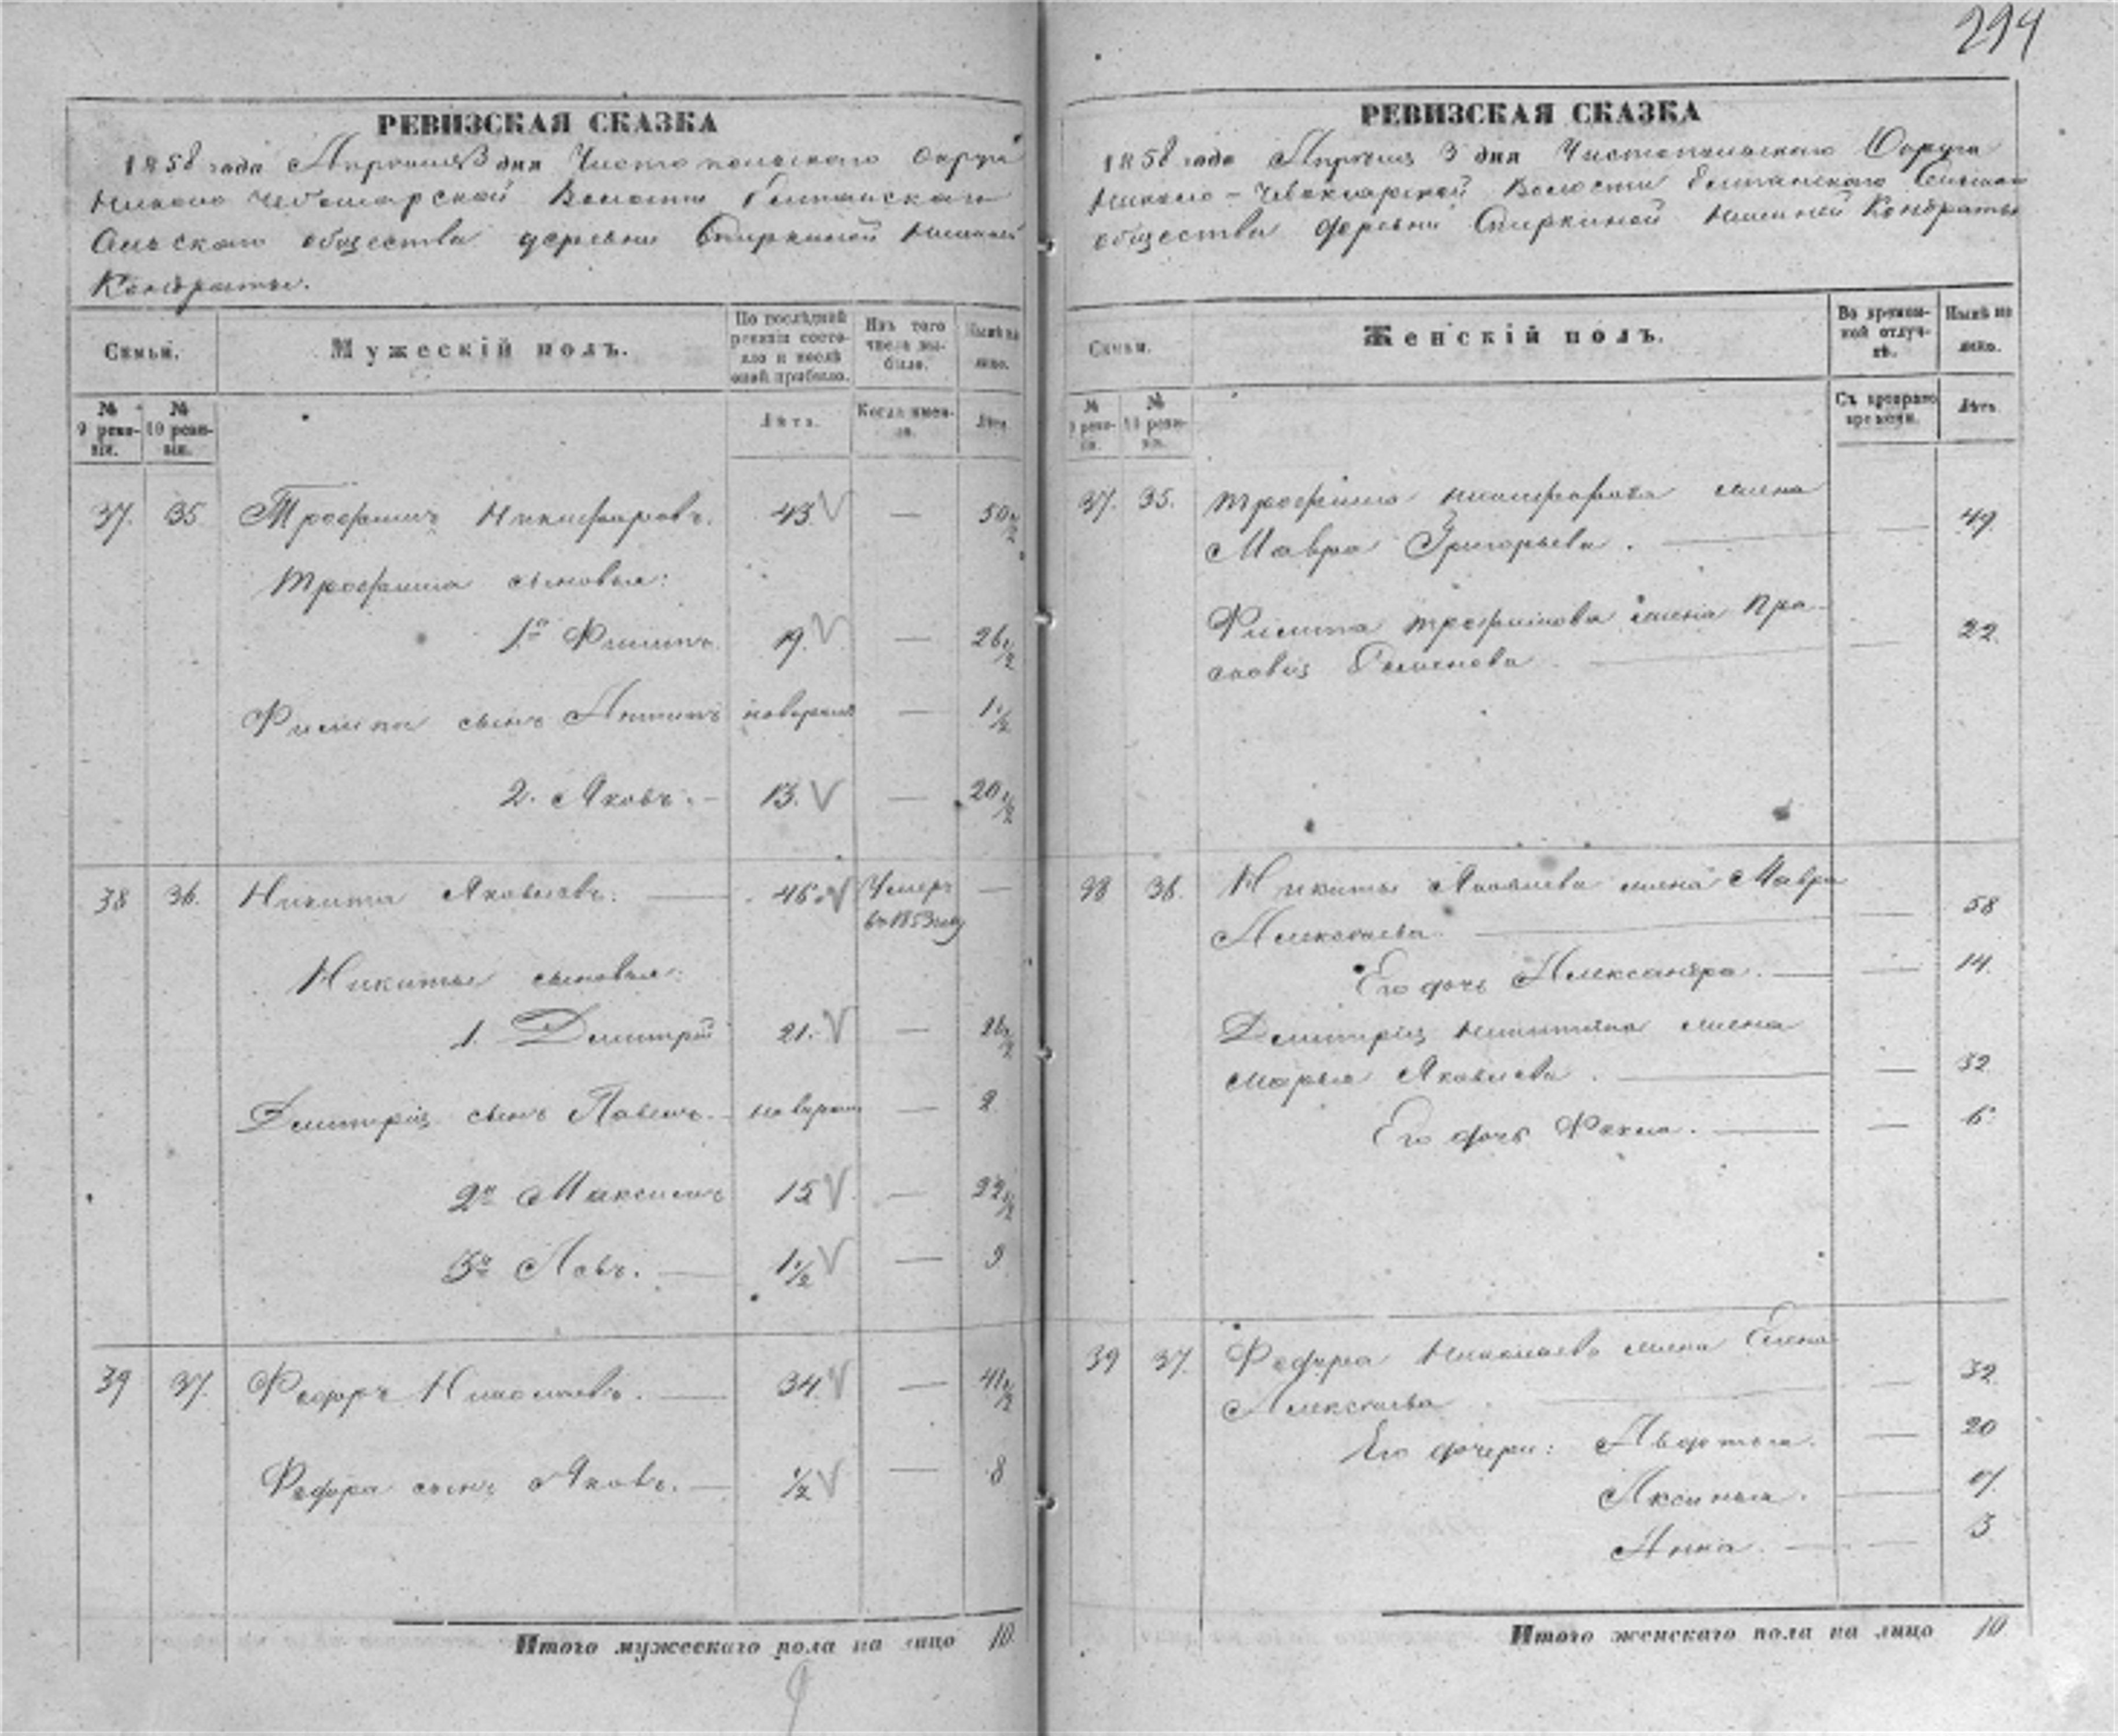 294
РЕВИЗСКАЯ СКАЗКА
1858 года Апреля 3 дня Чистопольскаго Округа
Николо Чебоксарской Волости
Сельскаго общества деревни Спиркиной
Кондраты.
Семьи.
Мужескій полъ.
По послѣдней ревизіи состояло и послѣ оной прибыло.
Изъ того числа выбыло.
Нынѣ на лицо.
№ 9 ревизіи.
№ 10 ревизіи.
Лѣтъ.
Когда именно.
Лѣтъ.
37. 35 Трофимъ Никифоровъ. 43. — 50 1/2
Трофима сыновья:
1й Филипъ 19. — 26 1/2
Филипа сынъ Антипъ — 1 1/2
2. Яковъ. — 13. — 20 1/2
38 36. Никита Яковлевъ. — 46. Умеръ —
въ 1853 году
Никиты сыновья:
1. Дмитрій 21. — 28 1/2
Дмитрія сынъ Павелъ. — 2
2й Максимъ 15 — 22 1/2
3й Левъ. — 1 1/2 — 9
39 37. Федоръ Николаевъ. — 34. — 41 1/2
Федора сынъ Яковъ. — 1/2 — 8
Итого мужескаго пола на лицо 10
РЕВИЗСКАЯ СКАЗКА
1858 года Апреля 3 дня Чистопольскаго Округа
Николо-Чебоксарской Волости
общества деревни Спиркиной Кондраты
Семьи.
Женскій полъ.
Во временной отлучкѣ.
Нынѣ на лицо.
№ 9 ревизіи.
№ 10 ревизіи.
Съ котораго времени.
Лѣтъ.
37. 35. Трофима Никифорова жена
Мавра Григорьева. — — 49.
Филипа Трофимова жена Пра-
сковія Семенова — — 22.
38 36. Никиты Яковлева жена Мавра
Алексеева. — — 58
Его дочь Александра. — — 14.
Дмитрія Никитина жена
Марья Яковлева. — — 32.
Его дочь Фекла. — — 6
39 37. Федора Николаева жена Елена
Алексеева — — 39
Его дочери: Авдотья. — 20
Аксинья. —
Анна. — — 3
Итого женскаго пола на лицо 10